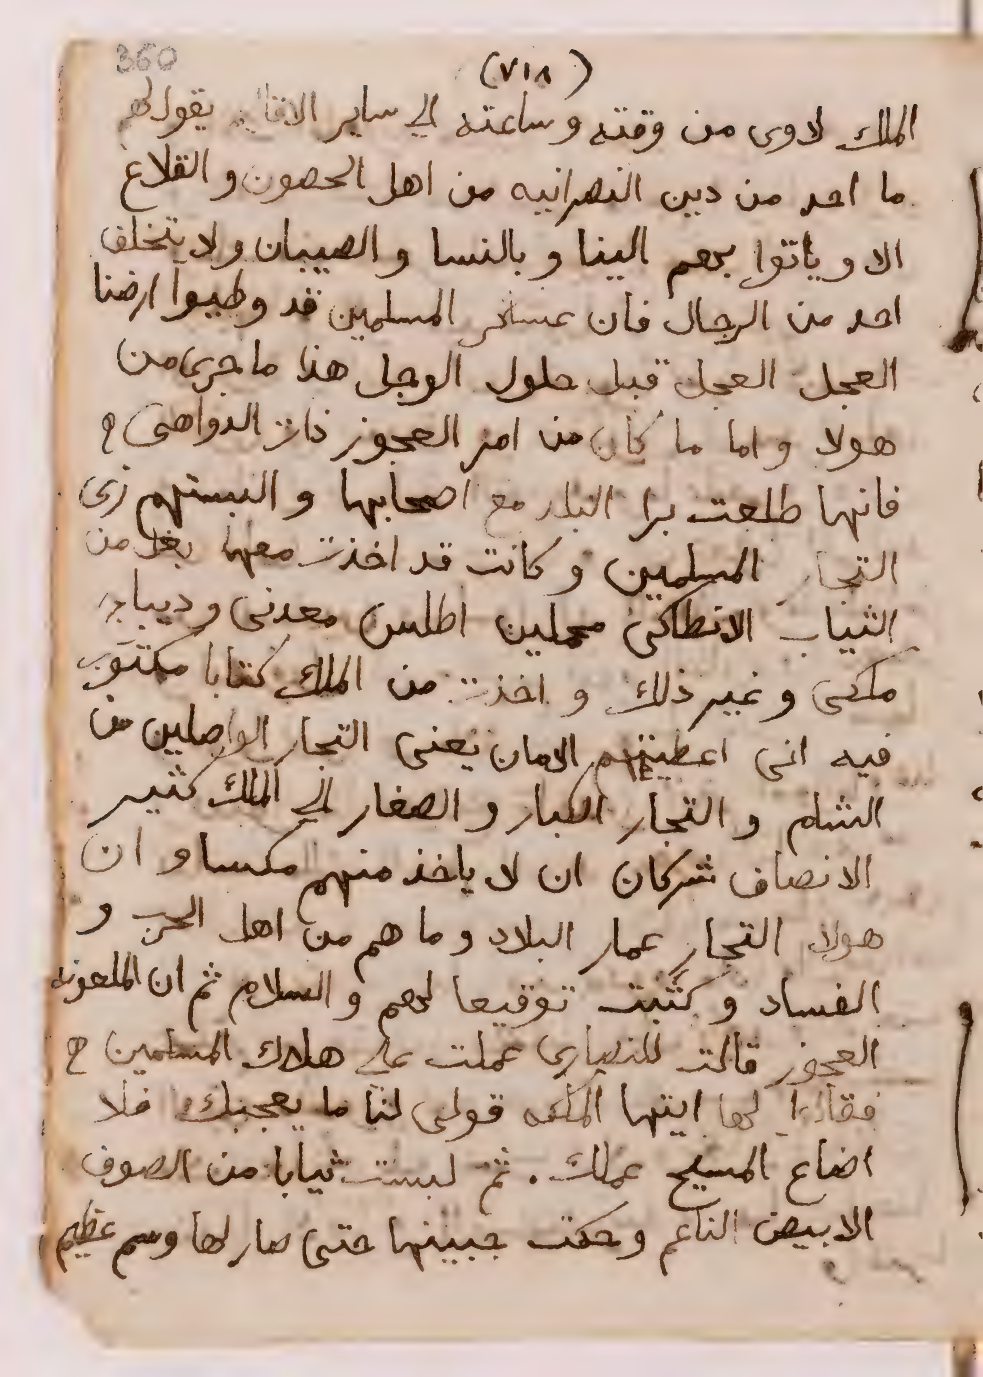 360
(٧١٨)
الملك لاوى من وقته وساعته الى ساير الاقاليم يقول لهم
ما احد من دين النصرانيه من اهل الحصون و القلاع
الا و ياتوا بهم الينا و بالنسا و الصيبان و لا يتخلف
احد من الرجال فان عساكر المسلمين قد وطيوا ارضنا
العجل العجل قبل حلول الوجل هذا ما جرى من
هولا و اما ما كان من امر العجوز ذات الدواهى
فانها طلعت برا البلد مع اصحابها و البستهم زى
التجار المسلمين و كانت قد اخذت معها بغل من
الثياب الانطاكى محملين اطلس معدنى و ديباج
ملكى و غير ذلك و اخذت من الملك كتابا مكتوب
فيه انى اعطيتهم الامان يعنى التجار الواصلين من
الشام و التجار الكبار و الصغار الى الملك كثير
الانصاف شركان ان لا ياخذ منهم مكسا و ان
هولا التجار عمار البلاد و ما هم من اهل الحرب و
الفساد و كتبت توقيعا لهم و السلام ثم ان الملعونه
العجوز قالت للنصارى عملت على هلاك المسلمين
فقالوا لها ايتها الملكه قولى لنا ما يعجبك فلا
اضاع المسيح عملك . ثم لبست ثيابا من الصوف
الابيض الناعم و حكت جبينها حتى صار لها وسم عظيم